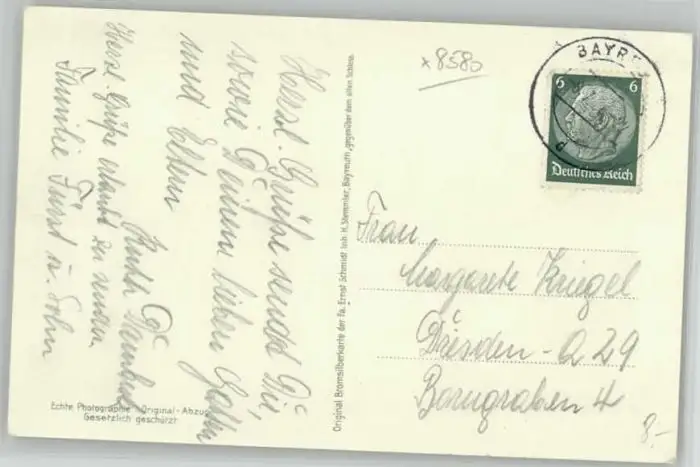 Herzl. Grüße sendet Dir,
sowie Deinem lieben Gatten
und Eltern
Ruth
Herzl. Grüße erlaubt zu senden
Familie Fürst u. Sohn
Echte Photographie Original-Abzug
Gesetzlich geschützt
Original Bromsilberkarte der Fa. Ernst Schmidt Inh. H. Stemmler, Bayreuth, gegenüber dem alten Schloss.
x8580
BAYR
6 6
Deutsches Reich
Frau
Margarete Kriegel
Dresden-A 29
Borngraben 4
8,-